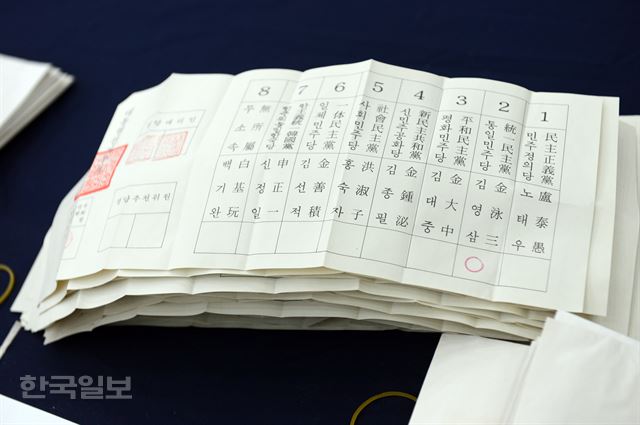 1
民主正義黨 盧泰愚
민주정의당 노태우
2
統一民主黨 金泳三
통일민주당 김영삼
3
平和民主黨 金大中
평화민주당 김대중
4
新民主共和黨 金鍾泌
신민주공화당 김종필
5
社會民主黨 洪淑子
사회민주당 홍숙자
6
一体民主黨 金善積
일체민주당 김선적
7
韓國黨 申正一
신정일
8
無所屬 白基玩
무소속 백기완
정당추천위원
한국일보